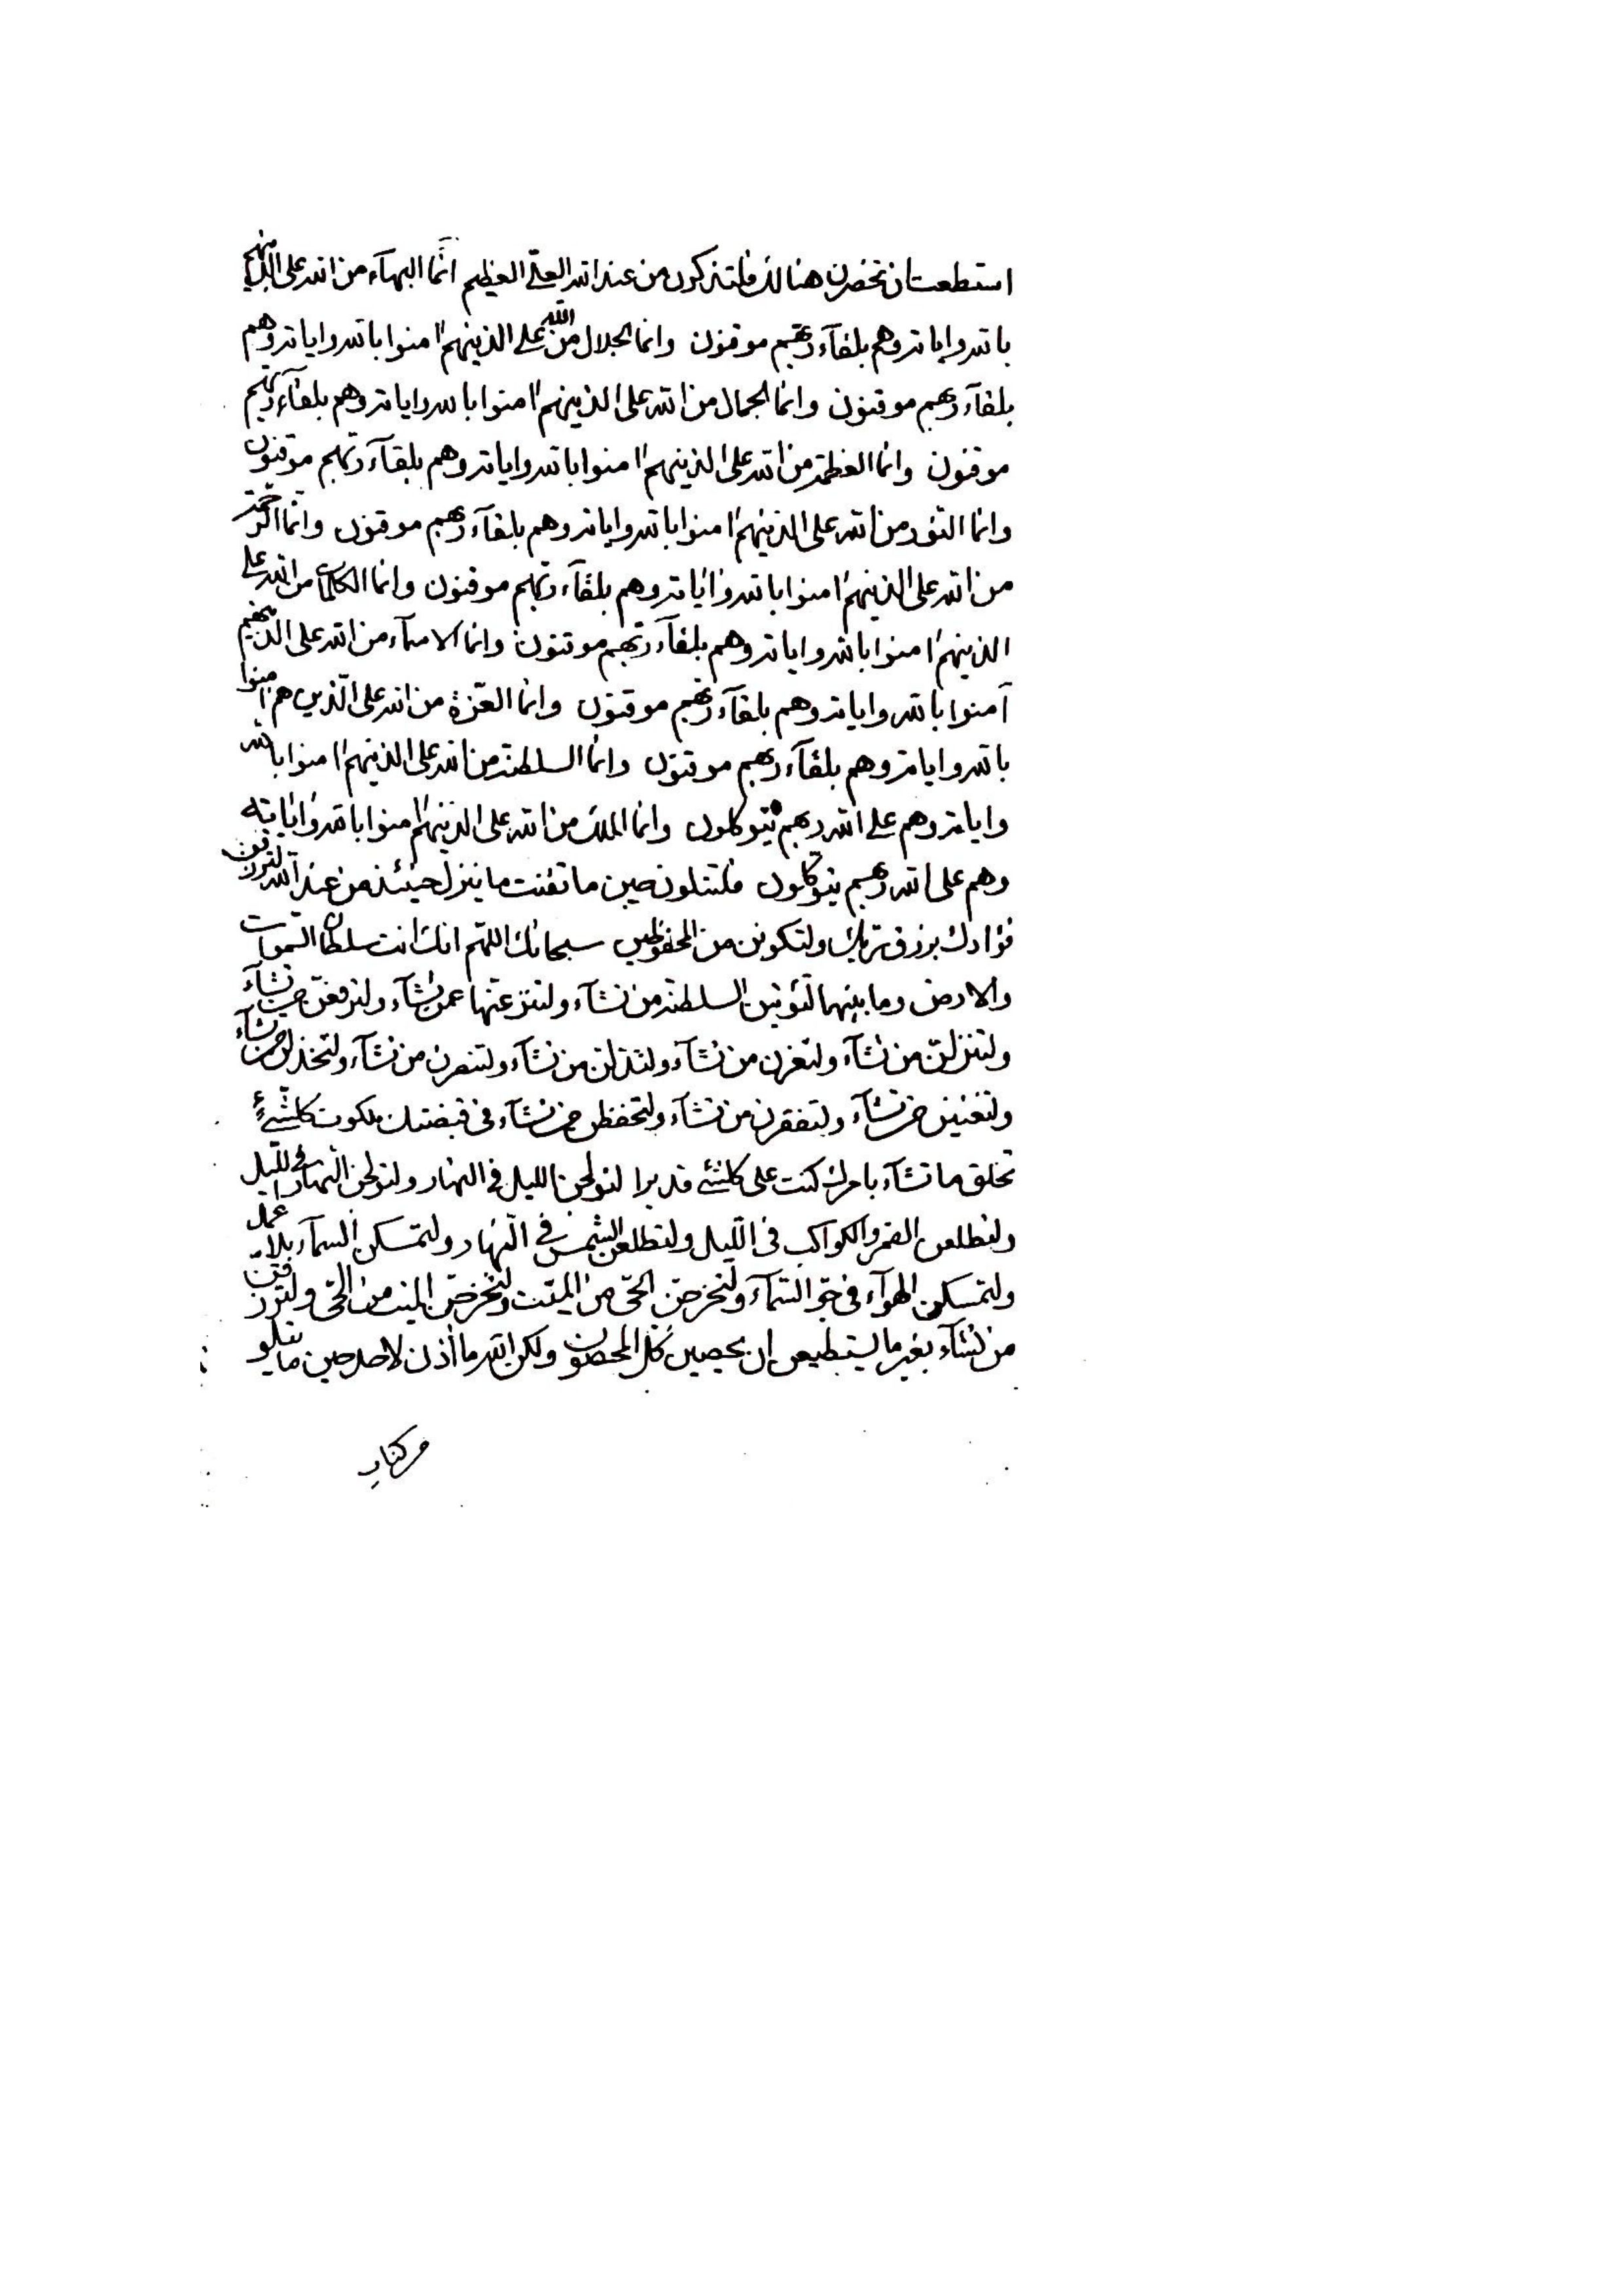 استطعت ان تحضرن هنالك فلتذكرون من عند الله العلي العظيم انما البهآء من الله على الذينهم
بالله واياته وهم بلقآء ربهم موقنون وانما الجلال من الله على الذينهم امنوا بالله واياته وهم
بلقآء ربهم موقنون وانما الجمال من الله على الذينهم امنوا بالله واياته وهم بلقآء ربهم
موقنون وانما العظمة من الله على الذينهم امنوا بالله واياته وهم بلقآء ربهم موقنون
وانما النور من الله على الذينهم امنوا بالله واياته وهم بلقآء ربهم موقنون وانما الرحمة
من الله على الذينهم امنوا بالله واياته وهم بلقآء ربهم موقنون وانما الكلمات من الله على
الذينهم امنوا بالله واياته وهم بلقآء ربهم موقنون وانما الاسمآء من الله على الذينهم
آمنوا بالله واياته وهم بلقآء ربهم موقنون وانما العزة من الله على الذين هم امنوا
بالله واياته وهم بلقآء ربهم موقنون وانما السلطنة من الله على الذينهم امنوا بالله
واياته وهم على الله ربهم يتوكلون وانما الملك من الله على الذينهم امنوا بالله واياته
وهم على الله ربهم يتوكلون فلتتلون حين ما تقنت ما ينزل حينئذ من عند الله لترزقن
فؤادك برزق ربك ولتكونن من المحفوظين سبحانك اللهم انك انت سلطان السموات
والارض وما بينهما لتؤتين السلطنة من تشآء ولتنزعنها عمن تشآء ولترفعن من تشآء
ولتنزلن من تشآء ولتعزن من تشآء ولتذلن من تشآء ولتنصرن من تشآء ولتخذلن من تشآء
ولتغنين من تشآء ولتفقرن من تشآء ولتحفظن من تشآء في قبضتك ملكوت كلشئ
تخلق ما تشآء بامرك انك كنت على كلشئ قديرا لتولجن الليل في النهار ولتولجن النهار في الليل
ولتطلعن القمر والكواكب في الليل ولتطلعن الشمس في النهار ولتمسكن السمآء بلا عمد
ولتمسكن الهوآء في جو السمآء ولتخرجن الحي من الميت ولتخرجن الميت من الحي ولترزقن
من تشآء بغير ما يستطيعن ان يحصين كل المحصون ولكن الله ما اذن لاحد حين ما يتلو